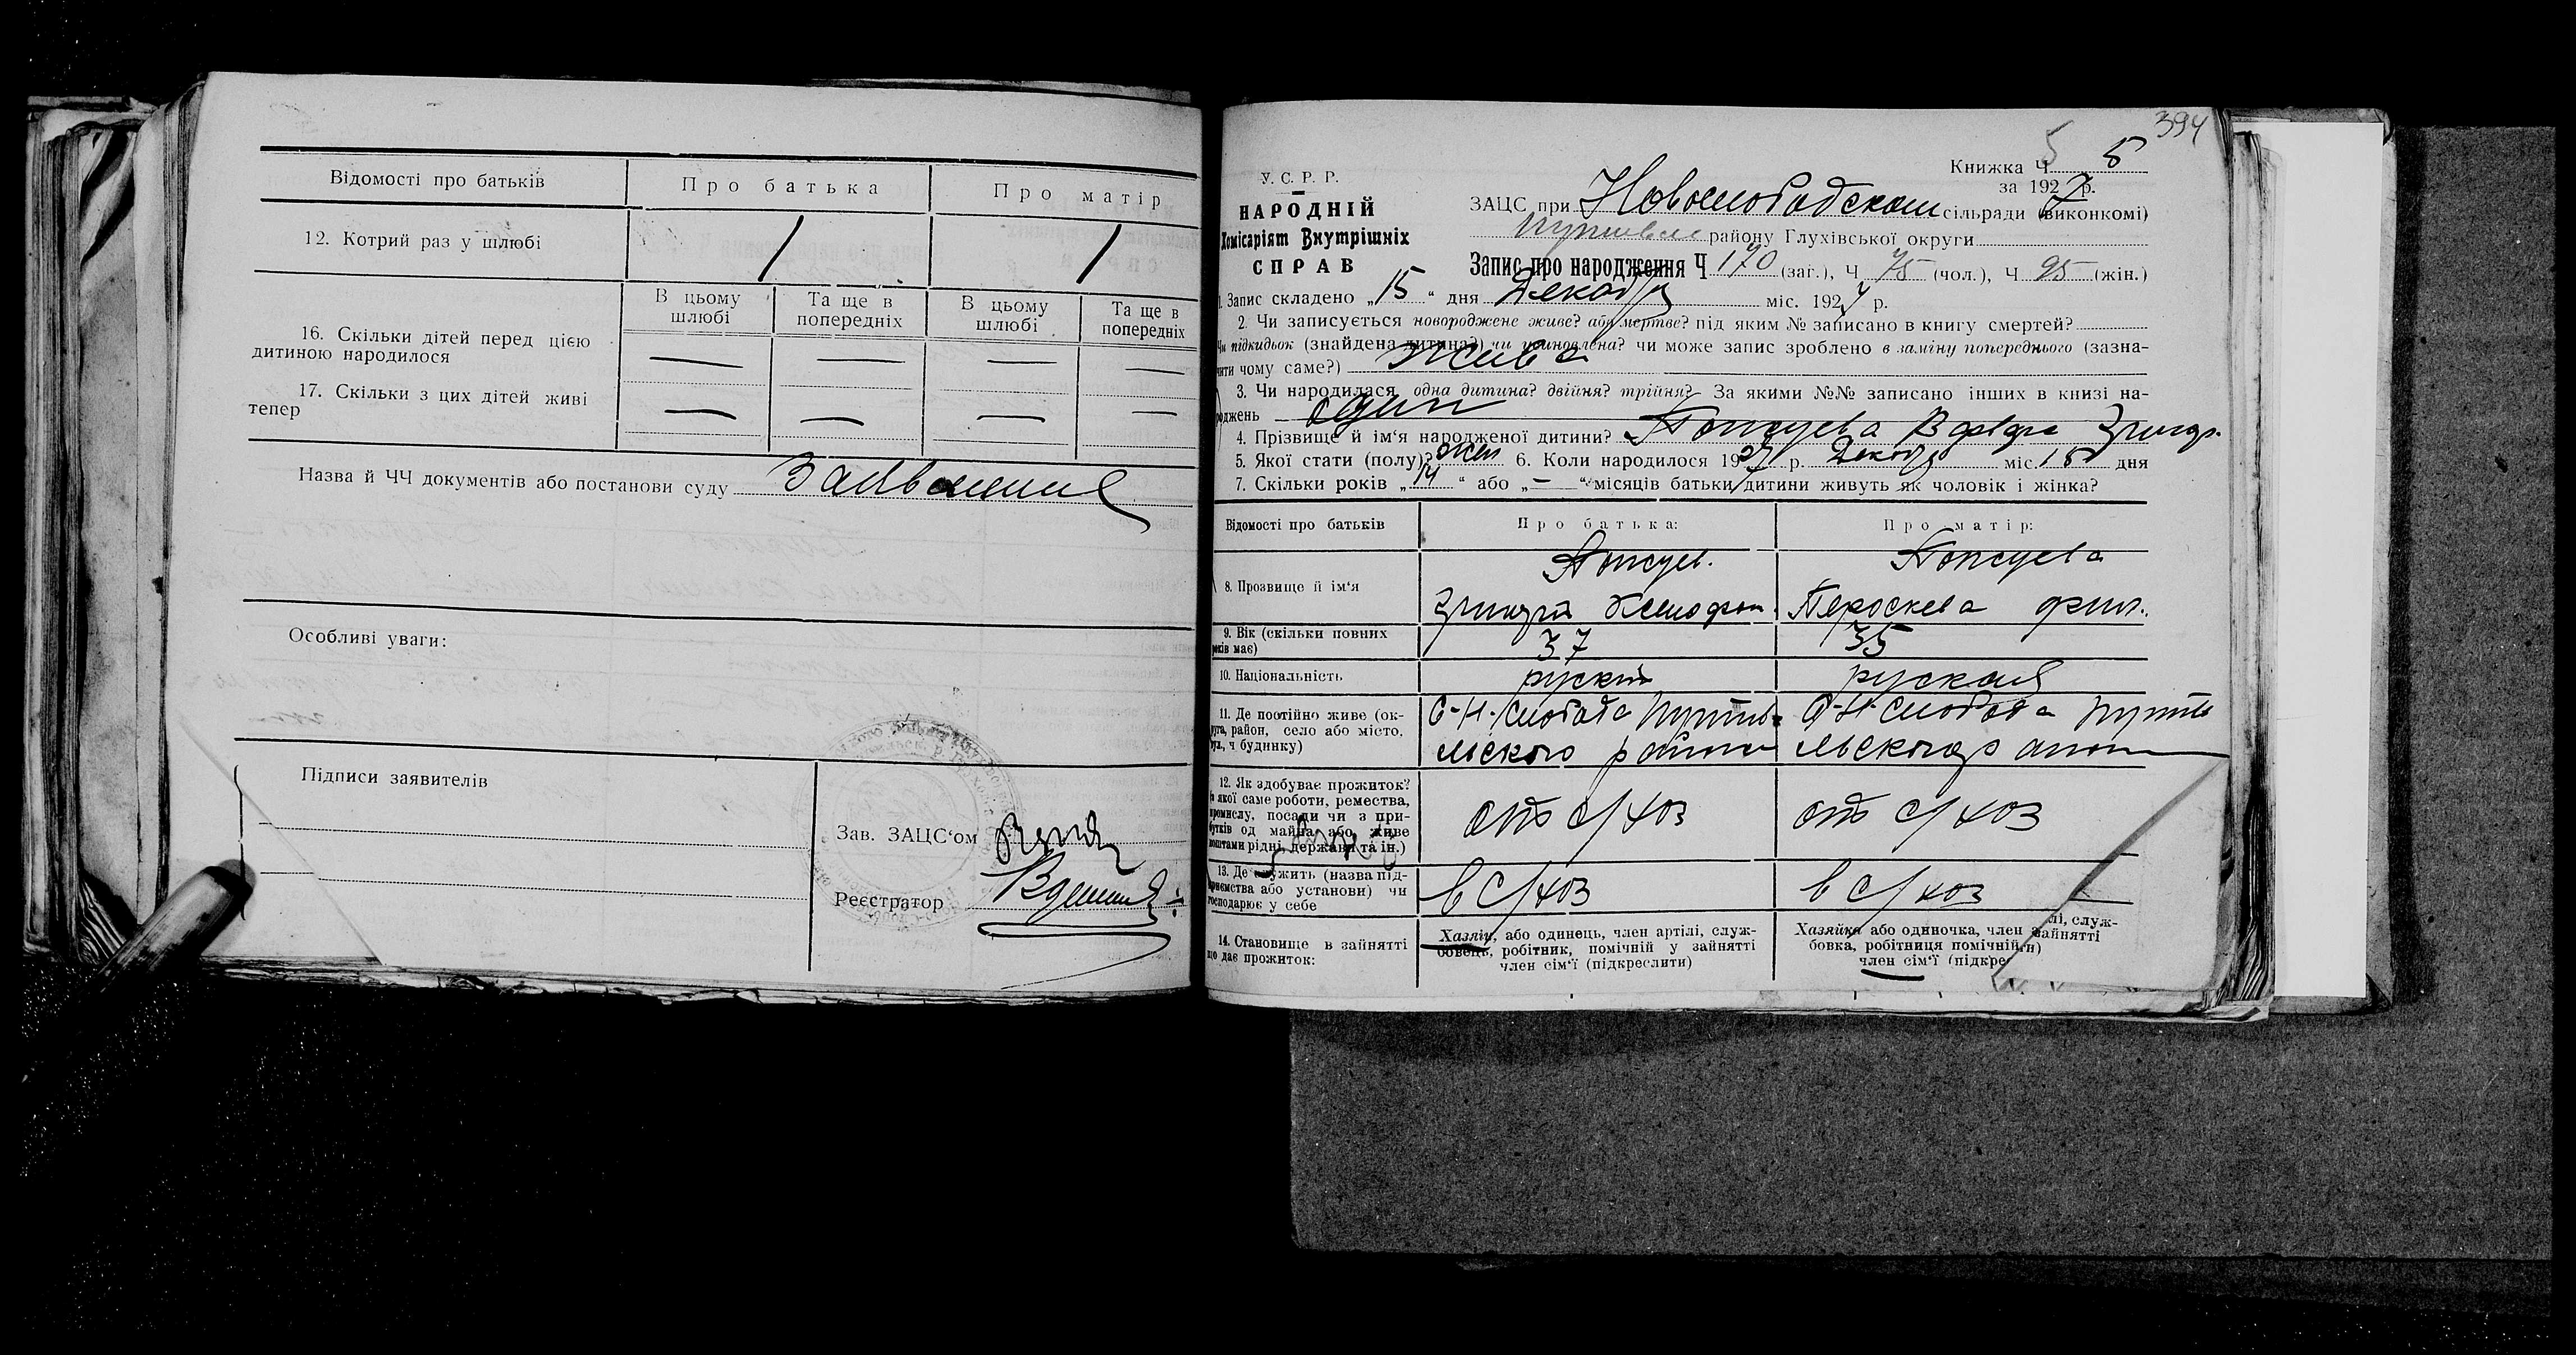 Відомості про батьків
Про батька
Про матір
12. Котрий раз у шлюбі
/
/
В цьому шлюбі
Та ще в попередніх
В цьому шлюбі
Та ще в попередніх
16. Скільки дітей перед цією
дитиною народилося
— — — —
17. Скільки з цих дітей живі
тепер
— — — —
Назва й ЧЧ документів або постанови суду
Особливі уваги:
Підписи заявителів
Зав. ЗАЦС‘ом
Реєстратор
394
Книжка Ч 5
за 1927 р.
У. С. Р. Р.
НАРОДНІЙ
Комісаріят Внутрішніх
СПРАВ
ЗАЦС при Новослободском сільради (виконкомі)
району Глухівської округи
Запис про народження Ч 170 (заг.), Ч 75 (чол.), Ч 95 (жін.)
1. Запис складено „15“ дня Декабр міс. 1927 р.
2. Чи записується новороджене живе? або мертве? під яким № записано в книгу смертей?
чи підкидьок (знайдена дитина?) чи усиновлена? чи може запис зроблено в заміну попереднього (зазна-
чити чому саме?) жива
3. Чи народилася одна дитина? двійня? трійня? За якими №№ записано інших в книзі на-
роджень один
4. Прізвище й ім‘я народженої дитини? Варвара Григор.
5. Якої стати (полу)? жен 6. Коли народилося 1927 р. Декабр міс. дня
7. Скільки років „14“ або „—“ місяців батьки дитини живуть як чоловік і жінка?
Відомості про батьків
Про батька:
Про матір:
8. Прозвище й ім‘я
Григорій Ксенофон.
Параскева фил.
9. Вік (скільки повних
років має)
37
35
10. Національність
руский
руская
11. Де постійно живе (ок-
руга, район, село або місто,
вул., ч будинку)
С-Н-Слобода Путив-
льского района
С-Н-Слобода Путив
льского района
12. Як здобуває прожиток?
(з якої саме роботи, ремества,
промислу, посади чи з при-
бутків од майна або живе
коштами рідні, держави та ін.)
от с/хоз
от с/хоз
13. Де служить (назва під-
приємства або установи) чи
господарює у себе
в с/хоз
в с/хоз
14. Становище в зайнятті
що дає прожиток:
Хазяїн, або одинець, член артілі, служ-
бовець, робітник, помічній у зайнятті
член сім‘ї (підкреслити)
Хазяйка або одиночка, член
лі, служ-
бовка, робітниця помічній
зайнятті
член сім‘ї (підкре